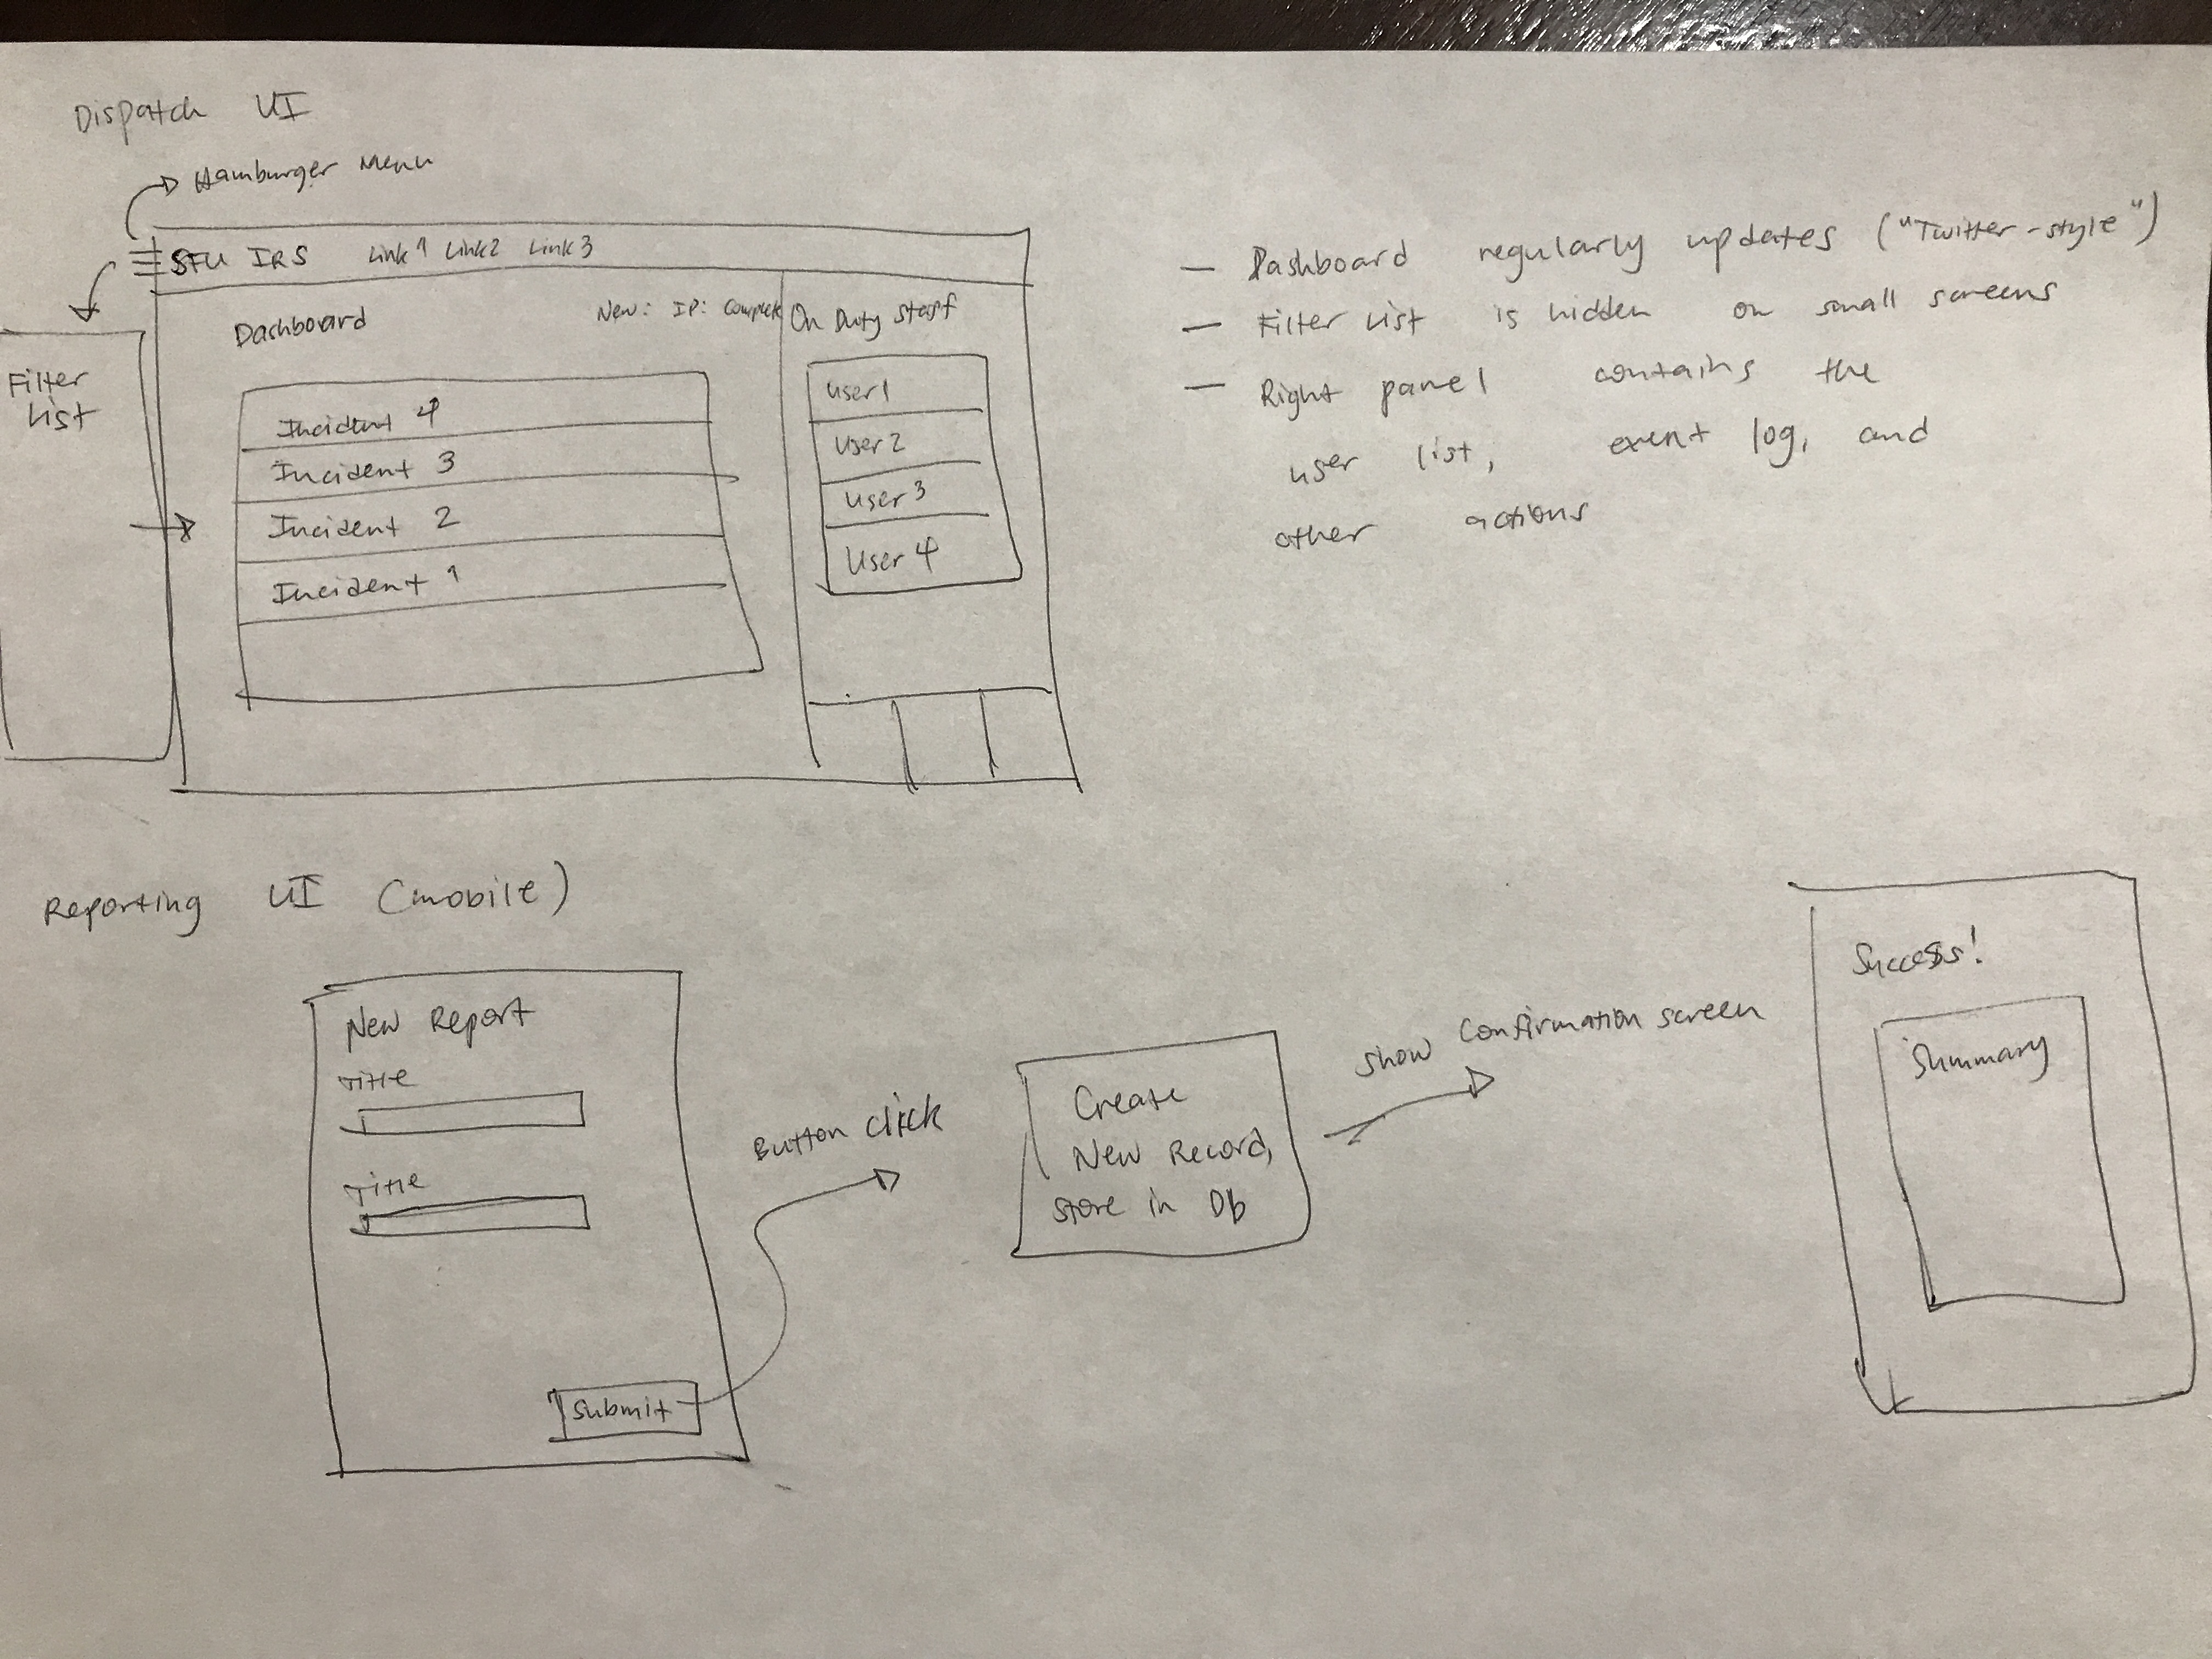 Dispatch UI
Hamburger Menu
SFU IRS Link 1 Link 2 Link 3
Dashboard New: IP: Complete
On Duty Staff
Filter
List
Incident 4
Incident 3
Incident 2
Incident 1
User 1
User 2
User 3
User 4
— Dashboard regularly updates ("Twitter-style")
— Filter List is hidden on small screens
— Right panel contains the
user list, event log, and
other actions
Reporting UI (mobile)
New Report
Title
Title
Submit
Button click
Create
New Record,
store in Db
show confirmation screen
Success!
Summary